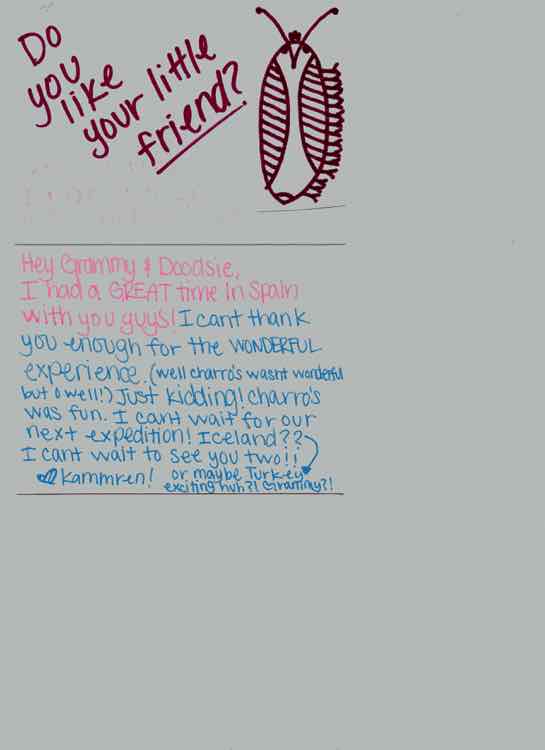 Do
you
like
your little
friend?
Hey Grammy & Doodsie,
I had a GREAT time in Spain
with you guys! I cant thank
you enough for the WONDERFUL
experience. (well charro's wasnt wonderful
but o well!) Just kidding! charro's
was fun. I cant wait for our
next expedition! Iceland??
I cant wait to see you two!!
Kammren! or maybe Turkey
exciting huh?! Grammy?!